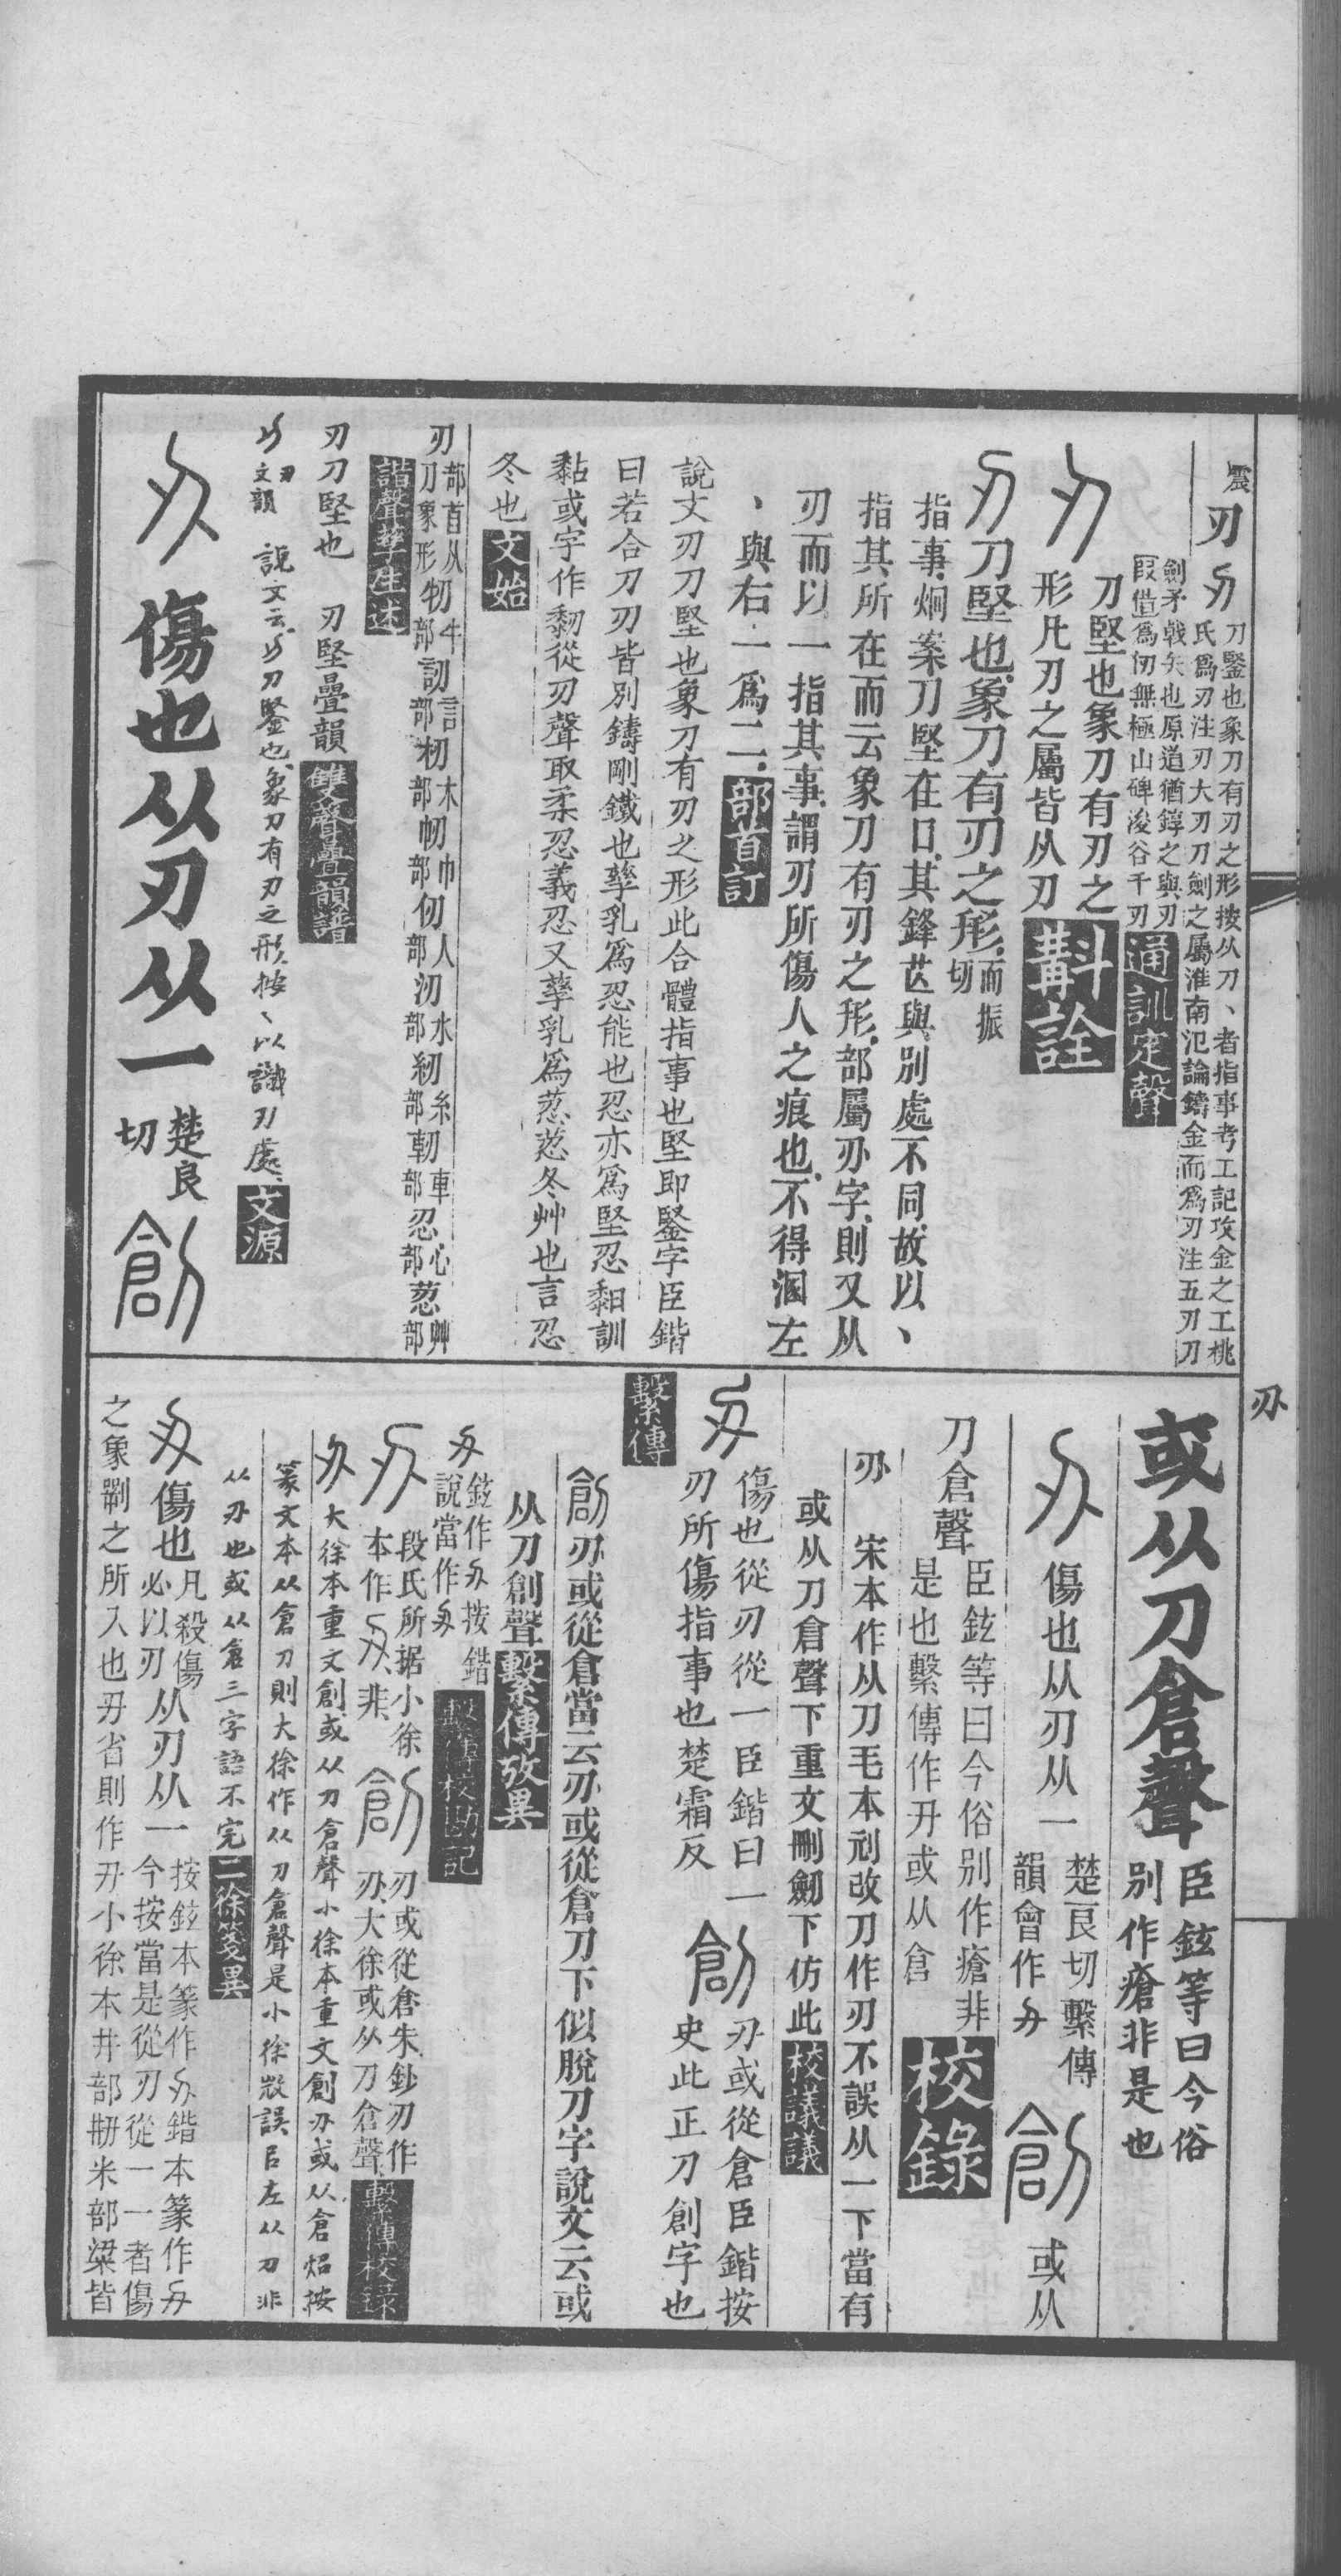 震
刃
刀鋻也象刀有刃之形按从刀丶者指事考工記攻金之工桃
氏爲刃注刃大刃刀劍之屬淮南氾論鑄金而爲刃注五刃刀
劍矛戟矢也原道猶錞之與刃
叚借爲仞無極山碑浚谷千刃
通訓定聲
刀堅也象刀有刃之
形凡刃之屬皆从刃
斠詮
刀堅也象刀有刃之形而振
切
指事炯案刀堅在口其鋒芒與別處不同故以丶
指其所在而云象刀有刃之形部屬刅字則又从
刃而以一指其事謂刃所傷人之痕也不得溷左
丶與右一爲二部首訂
說文刃刀堅也象刀有刃之形此合體指事也堅即鋻字臣鍇
曰若合刀刃皆別鑄剛鐵也孳乳爲忍能也忍亦爲堅忍黏訓
黏或字作䵑從刃聲取柔忍義忍又孳乳爲荵荵冬艸也言忍
冬也文始
刃
部首从
刀象形
牣牛部
訒言部
杒木部
帉巾部
仞人部
汈水部
紉糸部
軔車部
忍心部
荵艸部
諧聲孳生述
刃刀堅也 刃堅疊韻雙聲疊韻譜
刃文韻 說文云刃刀鋻也象刀有刃之形按丶以識刃處文源
傷也从刃从一楚良
切
創
或从刀倉聲臣鉉等曰今俗
別作瘡非是也
刅
傷也从刃从一楚良切繫傳
韻會作刅
創
或从
刀倉聲臣鉉等曰今俗別作瘡非
是也繫傳作刅或从倉
校錄
刅 宋本作从刀毛本剜改刀作刃不誤从一下當有
或从刀倉聲下重文刪劒下仿此校議議
傷也從刃從一臣鍇曰一
刃所傷指事也楚霜反
創
刅或從倉臣鍇按
史此正刀創字也
繫傳
創刅或從倉當云刅或從倉刀下似脫刀字說文云或
从刀創聲繫傳攷異
鉉作刅按鍇
說當作刅
繫傳校勘記
段氏所据小徐
本作刅非
創
刃或從倉朱鈔刃作
刅大徐或从刀倉聲
繫傳校錄
大徐本重文創或从刀倉聲小徐本重文創刅或从倉炤按
篆文本从倉刀則大徐作从刀倉聲是小徐㪔誤㠯左从刀非
从刅也或从倉三字語不完二徐箋異
傷也凡殺傷
必以刃从刃从一按鉉本篆作刅鍇本篆作刅
今按當是從刃從一一者傷
之象劀之所入也刅省則作刅小徐本井部刱米部粱皆
刅